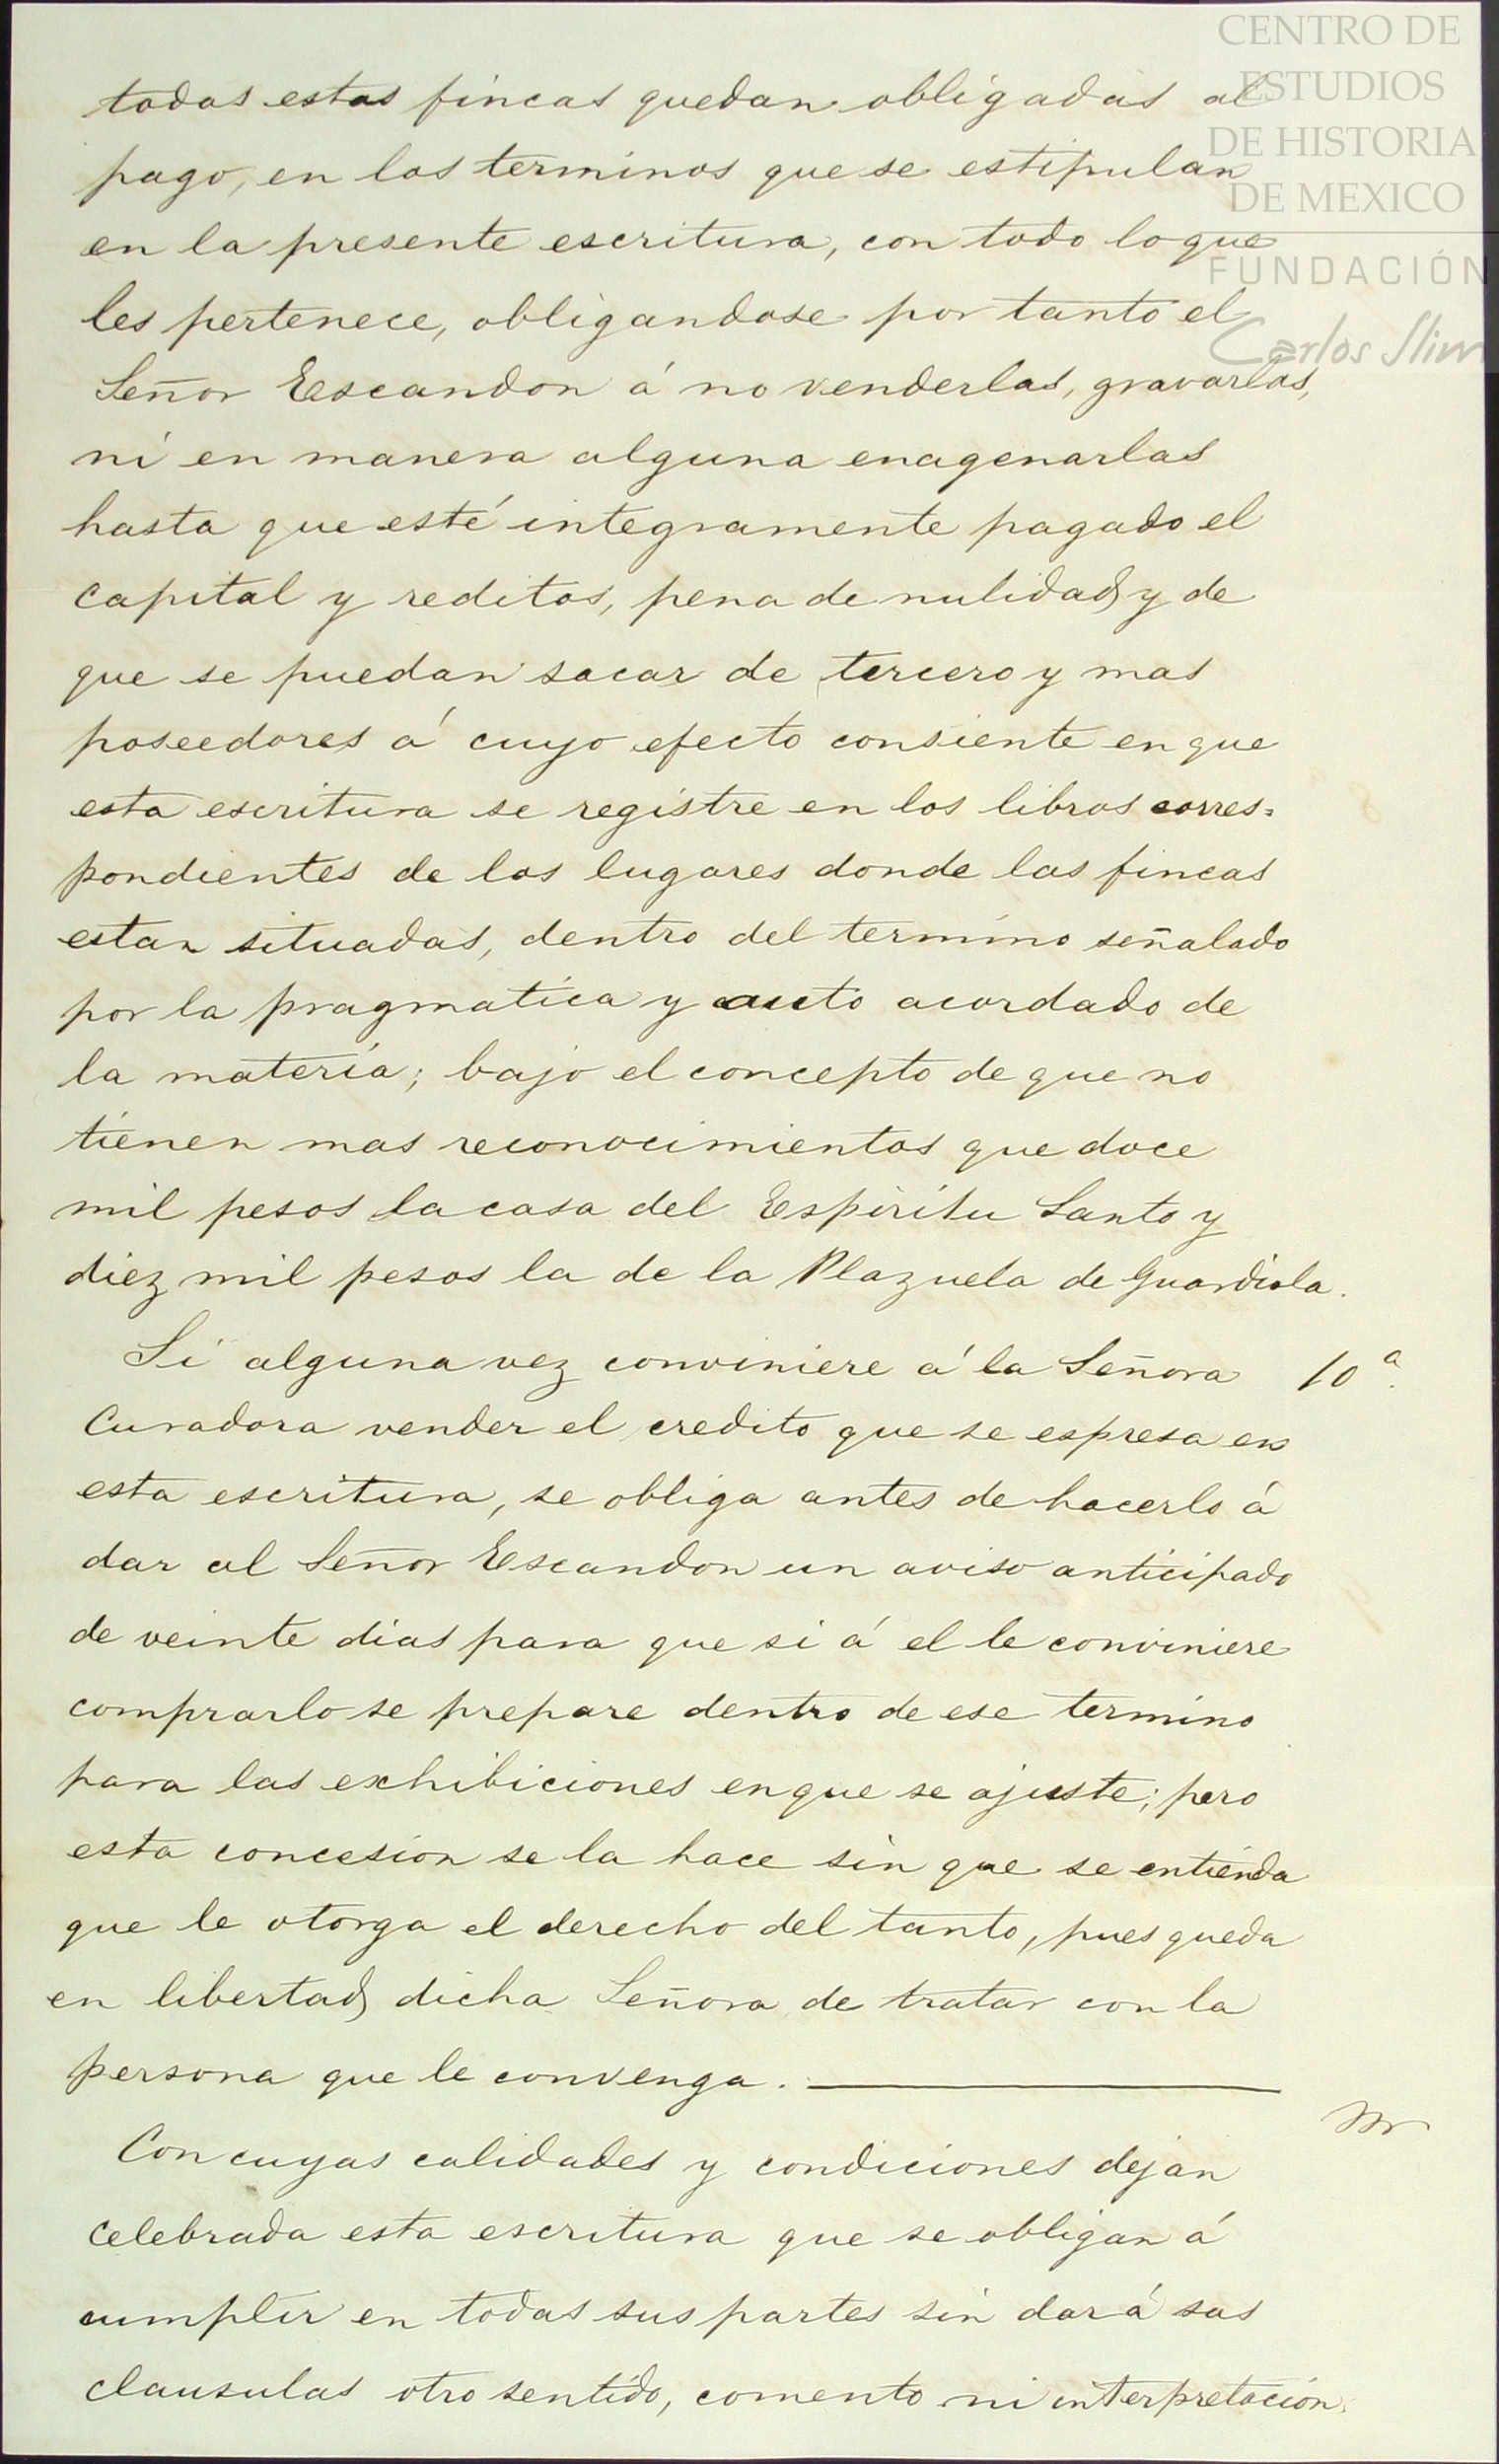 CENTRO DE
ESTUDIOS
DE HISTORIA
DE MEXICO
FUNDACIÓN
Carlos Slim
todas estas fincas quedan obligadas al
pago, en los terminos que se estipulan
en la presente escritura, con todo lo que
les pertenece, obligandose por tanto el
Señor Escandon á no venderlas, gravarlas,
ni en manera alguna enagenarlas
hasta que esté integramente pagado el
capital y reditos, pena de nulidad y de
que se puedan sacar de tercero y mas
poseedores á cuyo efecto consiente en que
esta escritura se registre en los libros corres=
pondientes de los lugares donde las fincas
estan situadas, dentro del termino señalado
por la pragmatica y auto acordado de
la materia; bajo el concepto de que no
tienen mas reconocimientos que doce
mil pesos la casa del Espiritu Santo y
diez mil pesos la de la Plazuela de Guardiola.
Si alguna vez conviniere á la Señora 10ª.
Curadora vender el credito que se espresa en
esta escritura, se obliga antes de hacerlo á
dar al Señor Escandon un aviso anticipado
de veinte dias para que si á el le conviniere
comprarlo se prepare dentro de ese termino
para las exhibiciones en que se ajuste; pero
esta concesion se la hace sin que se entienda
que le otorga el derecho del tanto, pues queda
en libertad dicha Señora de tratar con la
persona que le convenga.
Con cuyas calidades y condiciones dejan
celebrada esta escritura que se obligan á
cumplir en todas sus partes sin dar á sus
clausulas otro sentido, comento ni interpretacion.